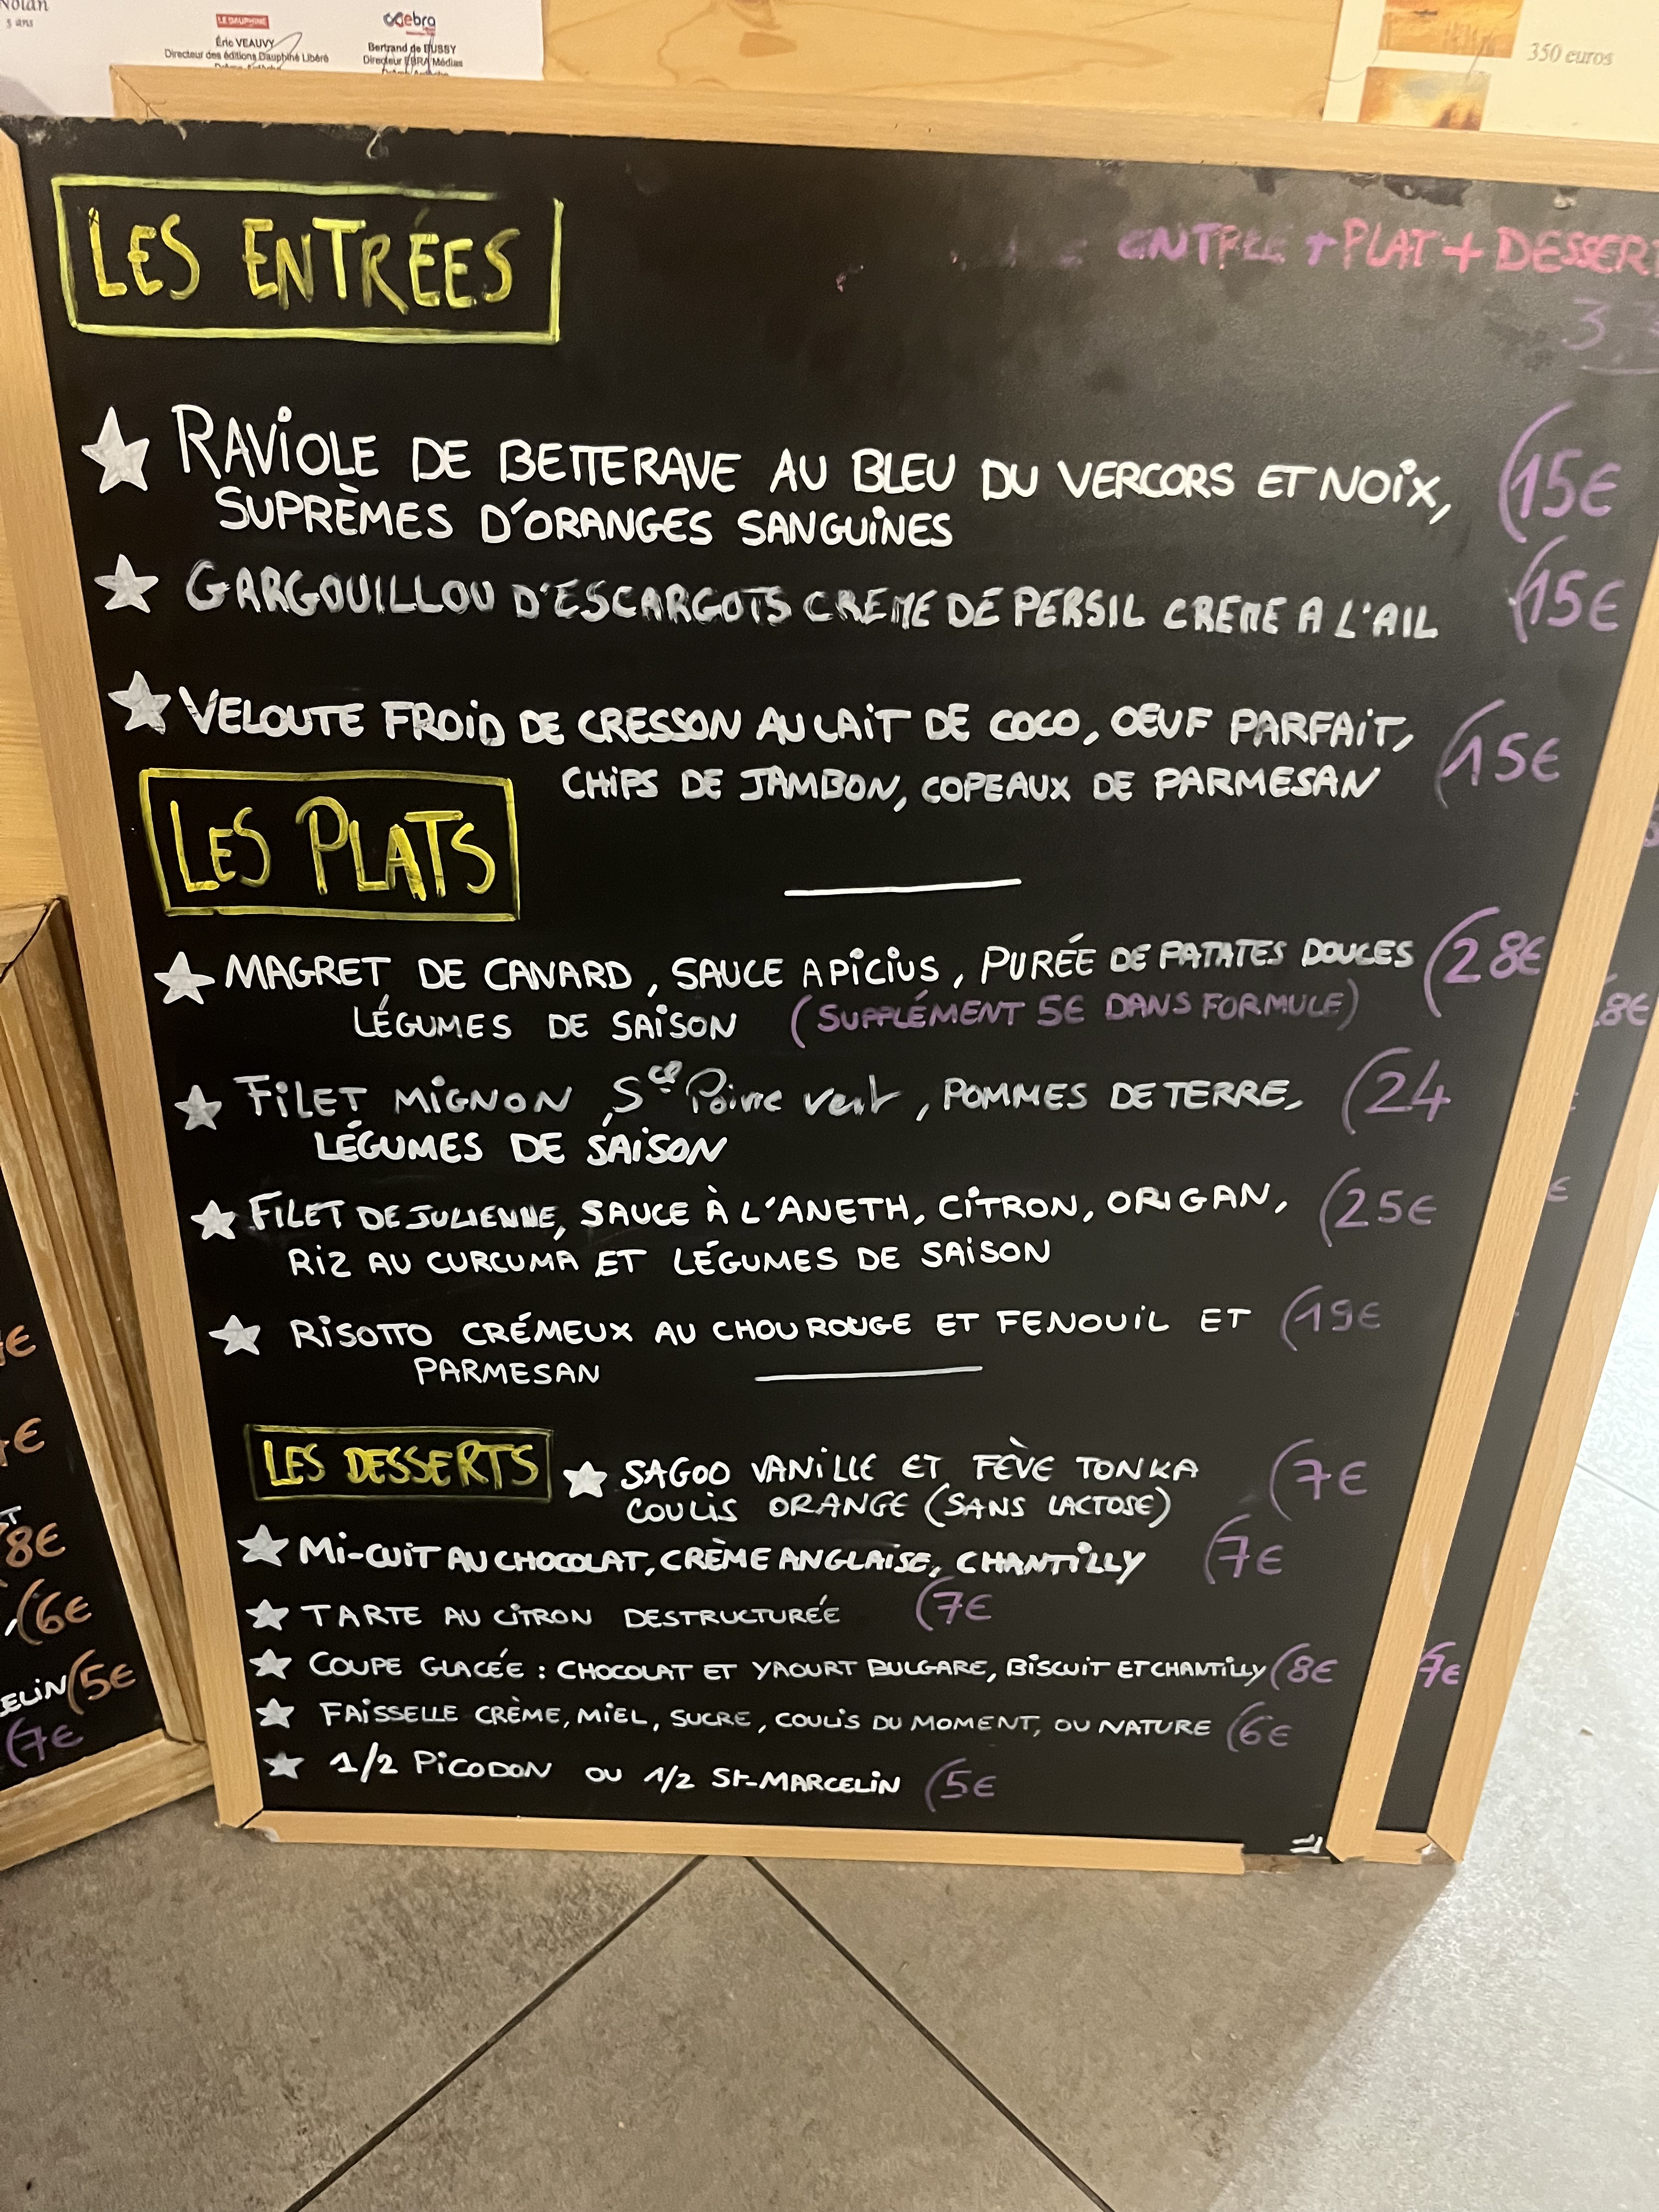 Nolan
5 ans
LE DAUPHINE
Éric VEAUVY
Directeur des éditions Dauphiné Libéré
ebra
Bertrand de BUSSY
Directeur EBRA Médias
350 euros
LES ENTRÉES
ENTREE + PLAT + DESSERT
RAVIOLE DE BETTERAVE AU BLEU DU VERCORS ET NOIX, (15€
SUPRÈMES D'ORANGES SANGUINES
GARGOUILLOU D'ESCARGOTS CREME DE PERSIL CREME A L'AIL (15€
VELOUTE FROID DE CRESSON AU LAIT DE COCO, OEUF PARFAIT,
CHIPS DE JAMBON, COPEAUX DE PARMESAN (15€
LES PLATS
MAGRET DE CANARD, SAUCE APICIUS, PURÉE DE PATATES DOUCES (28€
LÉGUMES DE SAISON (SUPPLÉMENT 5€ DANS FORMULE)
FILET MIGNON, Sce Poivre vert, POMMES DE TERRE, (24
LÉGUMES DE SAISON
FILET DE JULIENNE, SAUCE À L'ANETH, CITRON, ORIGAN, (25€
RIZ AU CURCUMA ET LÉGUMES DE SAISON
RISOTTO CRÉMEUX AU CHOU ROUGE ET FENOUIL ET (19€
PARMESAN
LES DESSERTS
SAGOO VANILLE ET FÈVE TONKA (7€
COULIS ORANGE (SANS LACTOSE)
MI-CUIT AU CHOCOLAT, CRÈME ANGLAISE, CHANTILLY (7€
TARTE AU CITRON DESTRUCTURÉE (7€
COUPE GLACÉE : CHOCOLAT ET YAOURT BULGARE, BISCUIT ET CHANTILLY (8€
FAISSELLE CRÈME, MIEL, SUCRE, COULIS DU MOMENT, OU NATURE (6€
1/2 PICODON OU 1/2 St-MARCELIN (5€
8€
(6€
ELIN (5€
(7€
8€
7€